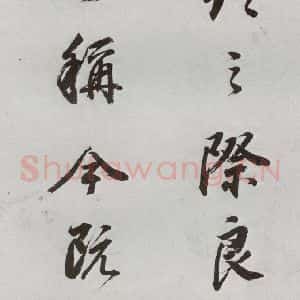 之際良
稱今既
Shufawang.CN